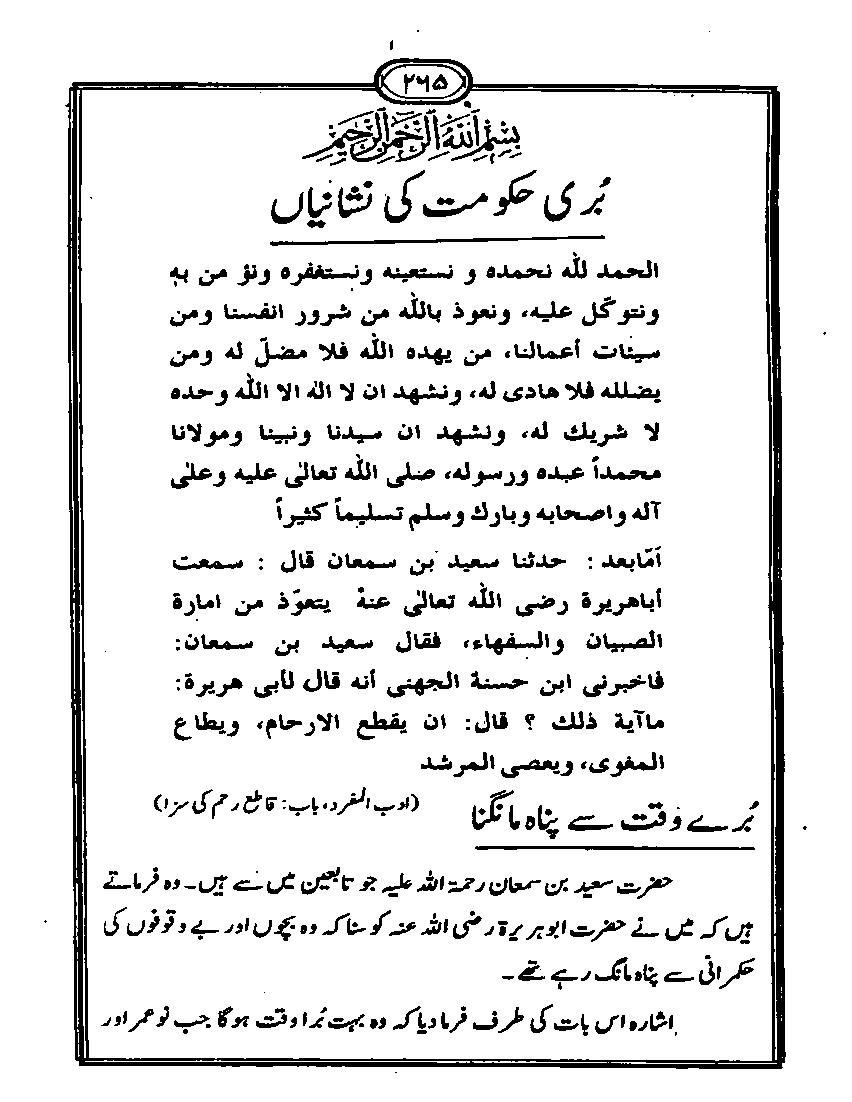 ۲۶۵
بِسْمِ اللهِ الرَّحْمٰنِ الرَّحِيْمِ
بُری حکومت کی نشانیاں
الحمد لله نحمده و نستعينه ونستغفره ونؤ من به
ونتوكّل عليه، ونعوذ بالله من شرور انفسنا ومن
سيئات أعمالنا، من يهده الله فلا مضلّ له ومن
يضلله فلا هادى له، ونشهد ان لا اله الا الله وحده
لا شريك له، ونشهد ان سيدنا ونبينا ومولانا
محمداً عبده ورسوله، صلى الله تعالى عليه وعلى
آله واصحابه وبارك وسلم تسليماً كثيراً
اَمّابعد : حدثنا سعيد بن سمعان قال : سمعت
أباهريرة رضى الله تعالى عنهُ يتعوّذ من امارة
الصبيان والسفهاء، فقال سعيد بن سمعان:
فاخبرنى ابن حسنة الجهنى أنه قال لأبى هريرة:
ماآية ذلك ؟ قال: ان يقطع الارحام، ويطاع
المغوى، ويعصى المرشد
(ادب المفرد، باب: قاطع رحم کی سزا)
بُرے وقت سے پناہ مانگنا
حضرت سعید بن سمعان رحمۃ اللہ علیہ جو تابعین میں سے ہیں۔ وہ فرماتے
ہیں کہ میں نے حضرت ابوہریرۃ رضی اللہ عنہ کو سنا کہ وہ بچوں اور بے وقوفوں کی
حکمرانی سے پناہ مانگ رہے تھے۔
اشارہ اس بات کی طرف فرما دیا کہ وہ بہت بُرا وقت ہوگا جب نو عمر اور